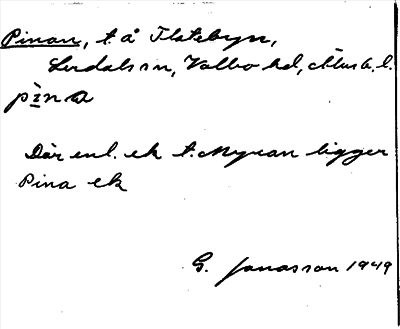 Pinan, t. å Slätebyn,
Lerdals sn, Valbo hd, Älvsb. l.
pìna
Där enl. ek t. Myran ligger
Pina ek
G. Jonasson 1949